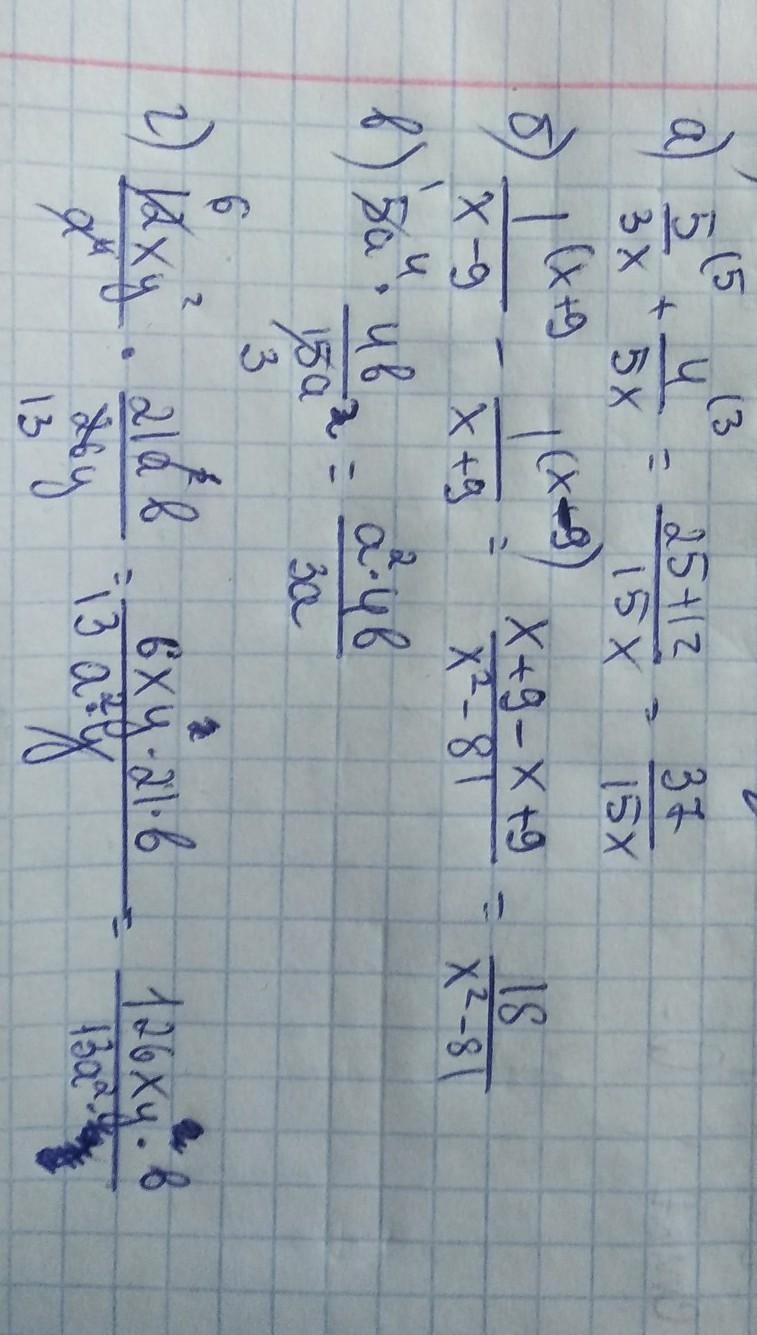 а) 5/3x (5 + 4/5x (3 = 25+12/15x = 37/15x
б) 1/x-9 (x+9 - 1/x+9 (x-9) = x+9-x+9/x²-81 = 18/x²-81
в) 5a⁴ · 4b/15a² = a²·4b/3a
1 3
г) 12xy²/a⁴ · 21a²b/26y = 6xy²·21·b/13a²·y = 126xy·b/13a²
6 13